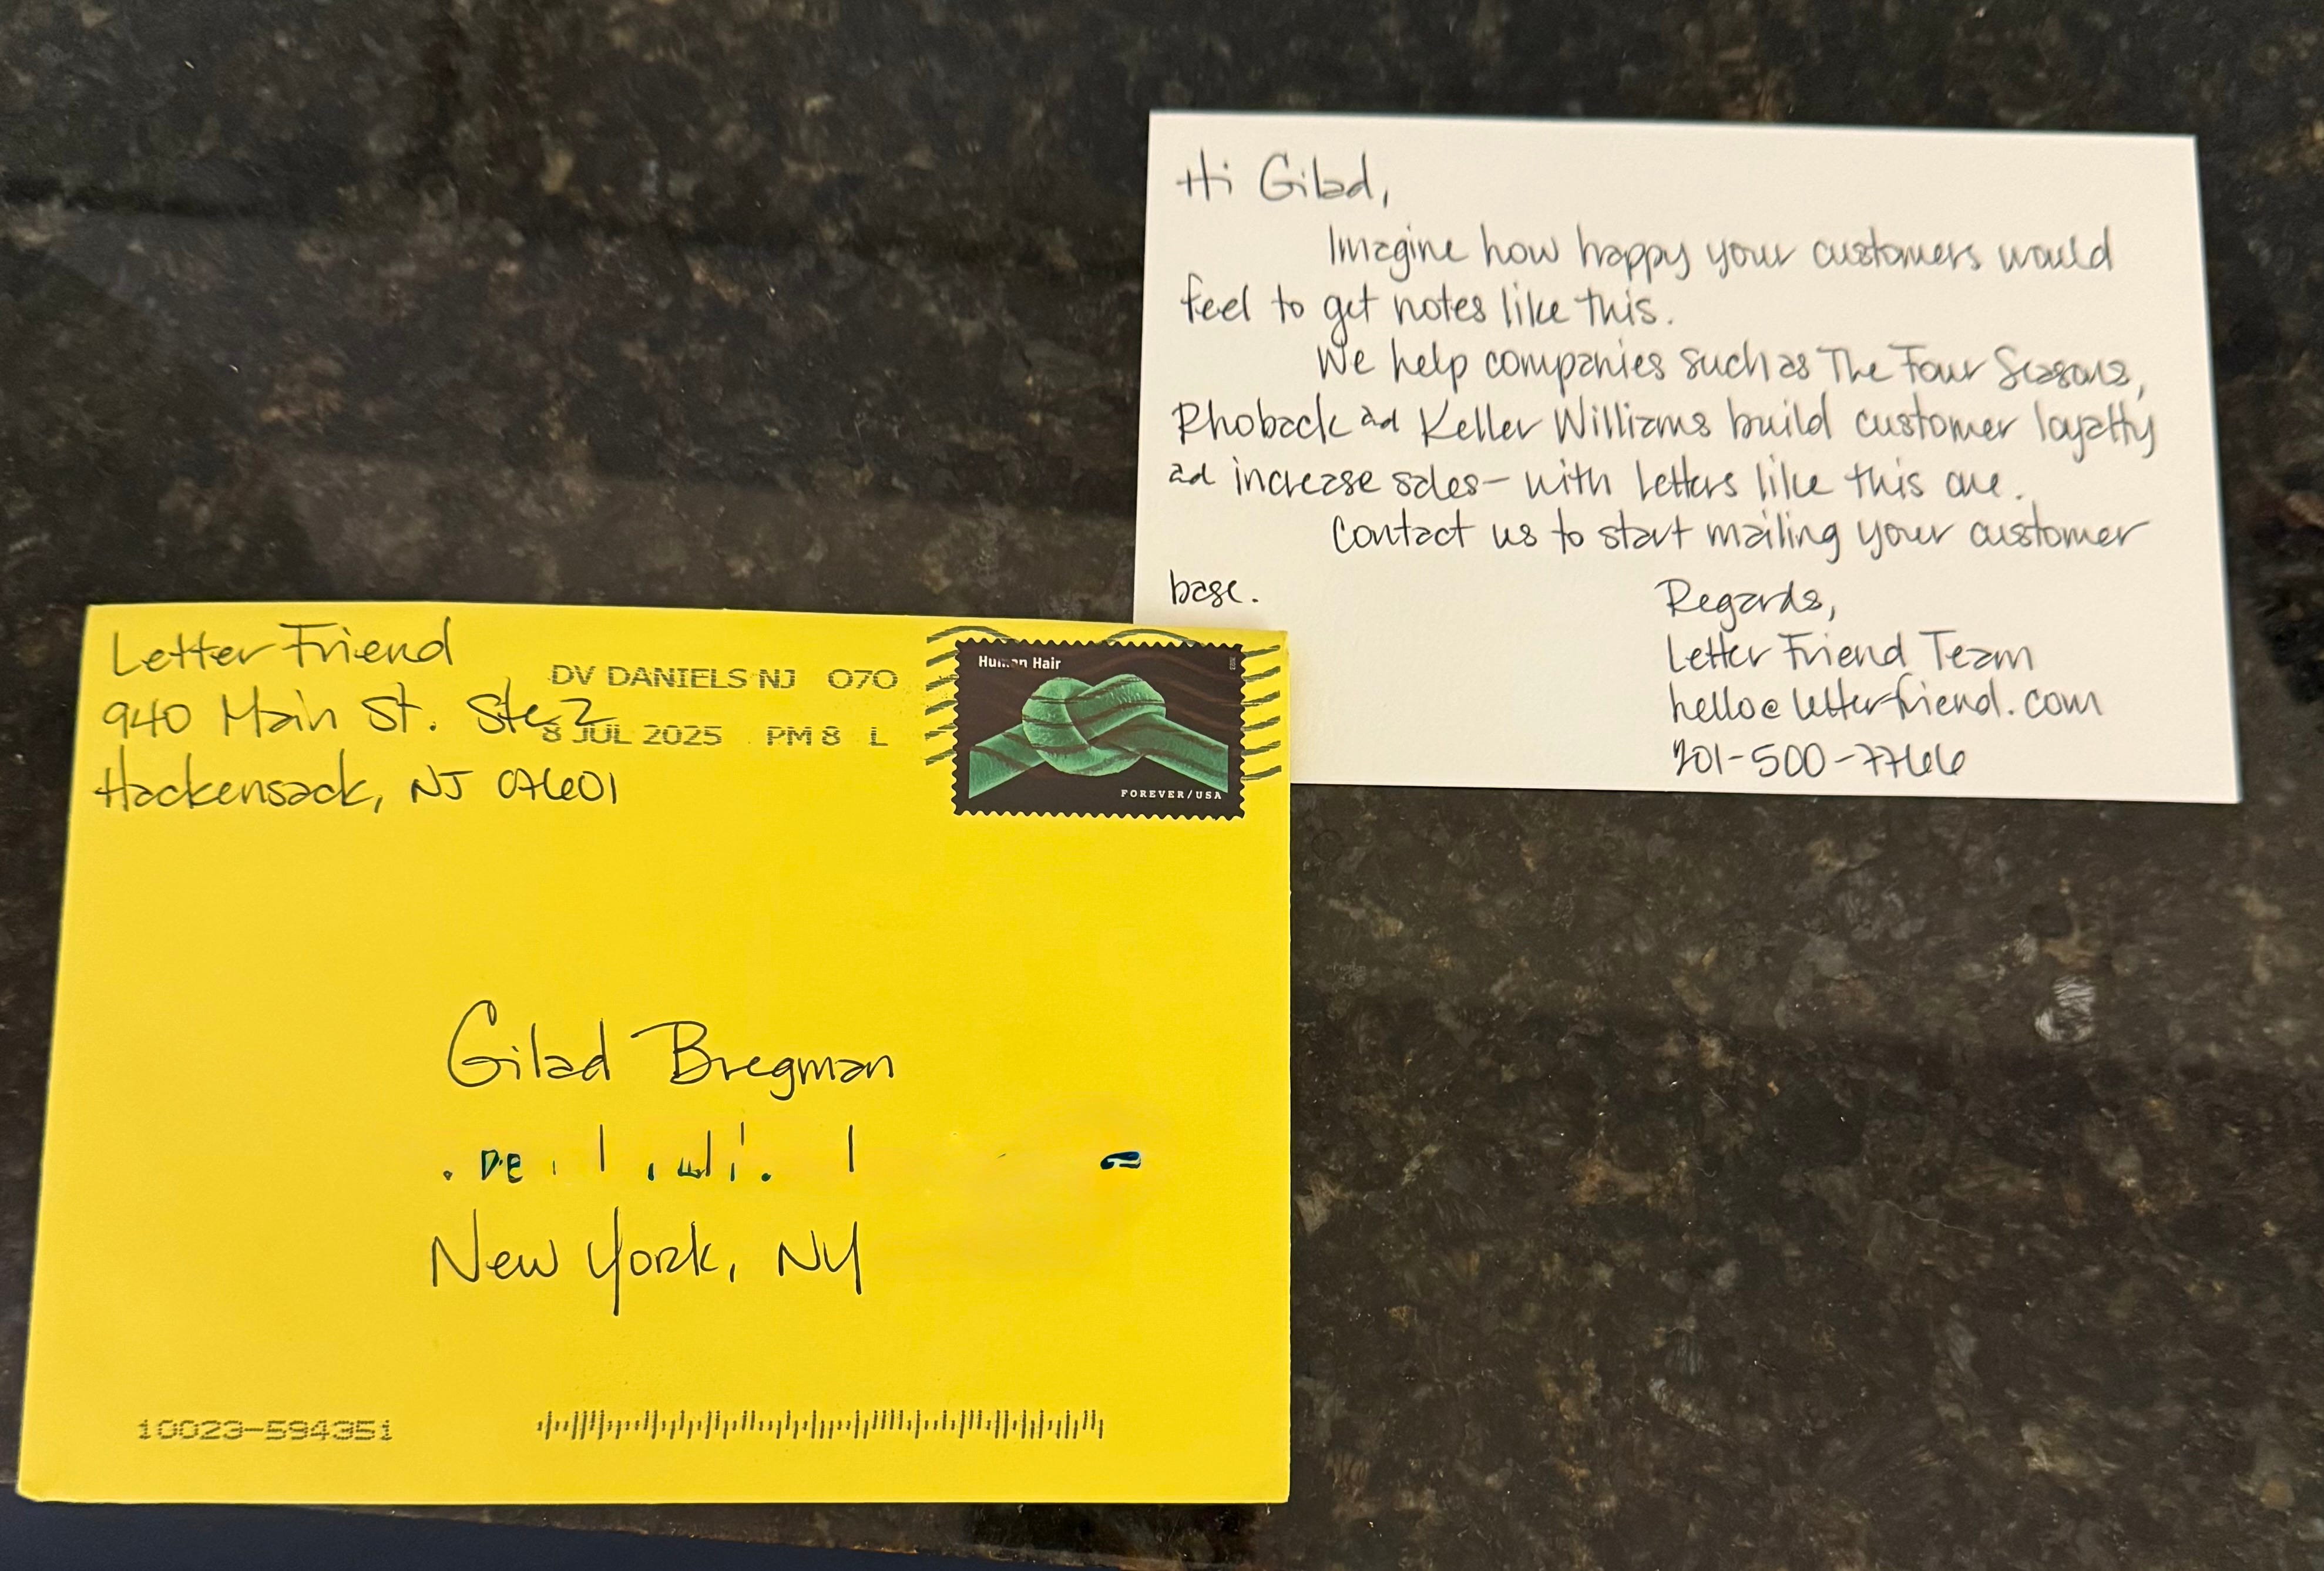 Hi Gilad,
Imagine how happy your customers would
feel to get notes like this.
We help companies such as The Four Seasons,
Rhoback ad Keller Williams build customer loyalty
ad increase sales- with letters like this one.
Contact us to start mailing your customer
base.
Regards,
Letter Friend Team
hello@letterfriend.com
201-500-7766
Letter Friend
940 Main St. Ste 2
Hackensack, NJ 07601
DV DANIELS NJ 070
8 JUL 2025 PM 8 L
Human Hair
FOREVER/USA
Gilad Bregman
New York, NY
10023-594351